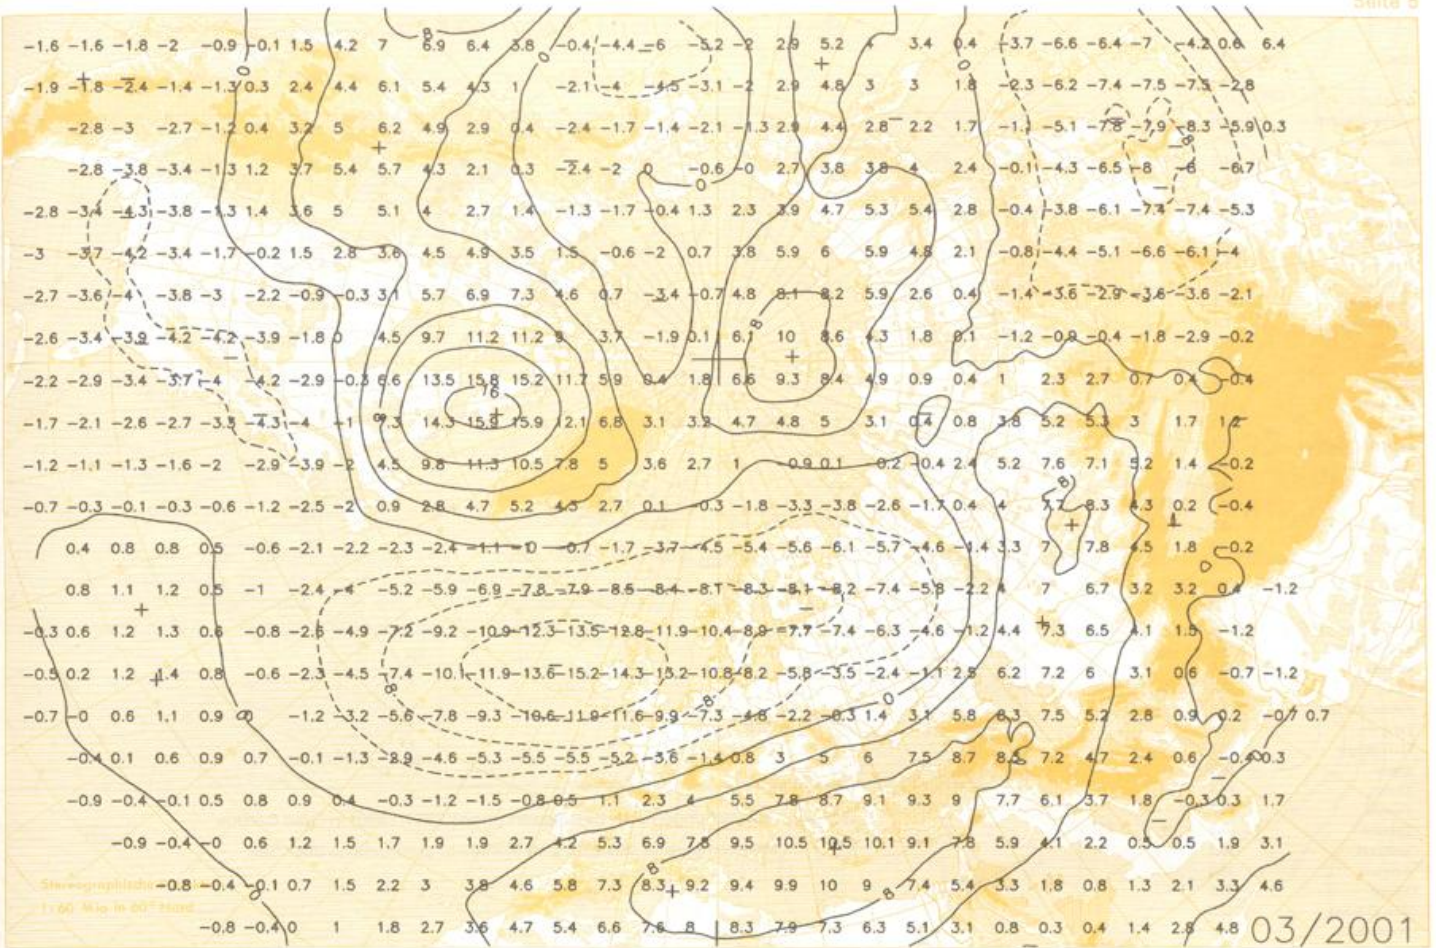 Seite 5
-1.6 -1.6 -1.8 -2 -0.9 -0.1 1.5 4.2 7 6.9 6.4 3.8 -0.4 -4.4 -6 -5.2 -2 2.9 5.2 4 3.4 0.4 -3.7 -6.6 -6.4 -7 -4.2 0.6 6.4
-1.9 -1.8 -2.4 -1.4 -1.3 0.3 2.4 4.4 6.1 5.4 4.3 1 -2.1 -4 -4.5 -3.1 -2 2.9 4.8 3 3 1.8 -2.3 -6.2 -7.4 -7.5 -7.5 -2.8
-2.8 -3 -2.7 -1.2 0.4 3.2 5 6.2 4.9 2.9 0.4 -2.4 -1.7 -1.4 -2.1 -1.3 2.9 4.4 2.8 2.2 1.7 -1.1 -5.1 -7.8 -7.9 -8.3 -5.9 0.3
-2.8 -3.8 -3.4 -1.3 1.2 3.7 5.4 5.7 4.3 2.1 0.3 -2.4 -2 0 -0.6 -0 2.7 3.8 3.8 4 2.4 -0.1 -4.3 -6.5 -8 -8 -6.7
-2.8 -3.4 -4.3 -3.8 -1.3 1.4 3.6 5 5.1 4 2.7 1.4 -1.3 -1.7 -0.4 1.3 2.3 3.9 4.7 5.3 5.4 2.8 -0.4 -3.8 -6.1 -7.4 -7.4 -5.3
-3 -3.7 -4.2 -3.4 -1.7 -0.2 1.5 2.8 3.6 4.5 4.9 3.5 1.5 -0.6 -2 0.7 3.8 5.9 6 5.9 4.8 2.1 -0.8 -4.4 -5.1 -6.6 -6.1 -4
-2.7 -3.6 -4 -3.8 -3 -2.2 -0.9 -0.3 3.1 5.7 6.9 7.3 4.6 0.7 -3.4 -0.7 4.8 8.1 8.2 5.9 2.6 0.4 -1.4 -3.6 -2.9 -3.6 -3.6 -2.1
-2.6 -3.4 -3.9 -4.2 -4.2 -3.9 -1.8 0 4.5 9.7 11.2 11.2 9 3.7 -1.9 0.1 6.1 10 8.6 4.3 1.8 0.1 -1.2 -0.9 -0.4 -1.8 -2.9 -0.2
-2.2 -2.9 -3.4 -3.7 -4 -4.2 -2.9 -0.3 6.6 13.5 15.8 15.2 11.7 5.9 0.4 1.8 6.6 9.3 8.4 4.9 0.9 0.4 1 2.3 2.7 0.7 0.4 -0.4
-1.7 -2.1 -2.6 -2.7 -3.3 -4.3 -4 -1 7.3 14.3 15.9 15.9 12.1 6.8 3.1 3.2 4.7 4.8 5 3.1 0.4 0.8 3.8 5.2 5.3 3 1.7 1.2
-1.2 -1.1 -1.3 -1.6 -2 -2.9 -3.9 -2 4.5 9.8 11.3 10.5 7.8 5 3.6 2.7 1 -0.9 0.1 0.2 -0.4 2.4 5.2 7.6 7.1 5.2 1.4 -0.2
-0.7 -0.3 -0.1 -0.3 -0.6 -1.2 -2.5 -2 0.9 2.8 4.7 5.2 4.3 2.7 0.1 -0.3 -1.8 -3.3 -3.8 -2.6 -1.7 0.4 4 7.7 8.3 4.3 0.2 -0.4
0.4 0.8 0.8 0.5 -0.6 -2.1 -2.2 -2.3 -2.4 -1.1 -0 -0.7 -1.7 -3.7 -4.5 -5.4 -5.6 -6.1 -5.7 -4.6 -1.4 3.3 7 7.8 4.5 1.8 -0.2
0.8 1.1 1.2 0.5 -1 -2.4 -4 -5.2 -5.9 -6.9 -7.8 -7.9 -8.5 -8.4 -8.1 -8.3 -8.1 -8.2 -7.4 -5.8 -2.2 4 7 6.7 3.2 3.2 0.4 -1.2
-0.3 0.6 1.2 1.3 0.6 -0.8 -2.6 -4.9 -7.2 -9.2 -10.9 -12.3 -13.5 -12.8 -11.9 -10.4 -8.9 -7.7 -7.4 -6.3 -4.6 -1.2 4.4 7.3 6.5 4.1 1.5 -1.2
-0.5 0.2 1.2 1.4 0.8 -0.6 -2.3 -4.5 -7.4 -10.1 -11.9 -13.6 -15.2 -14.3 -15.2 -10.8 -8.2 -5.8 -3.5 -2.4 -1.1 2.5 6.2 7.2 6 3.1 0.6 -0.7 -1.2
-0.7 -0 0.6 1.1 0.9 0 -1.2 -3.2 -5.6 -7.8 -9.3 -10.6 -11.9 -11.6 -9.9 -7.3 -4.8 -2.2 -0.3 1.4 3.1 5.8 8.3 7.5 5.2 2.8 0.9 0.2 -0.7 0.7
-0.4 0.1 0.6 0.9 0.7 -0.1 -1.3 -2.9 -4.6 -5.3 -5.5 -5.5 -5.2 -3.6 -1.4 0.8 3 5 6 7.5 8.7 8.5 7.2 4.7 2.4 0.6 -0.4 0.3
-0.9 -0.4 -0.1 0.5 0.8 0.9 0.4 -0.3 -1.2 -1.5 -0.8 0.5 1.1 2.3 4 5.5 7.8 8.7 9.1 9.3 9 7.7 6.1 3.7 1.8 -0.3 0.3 1.7
-0.9 -0.4 -0 0.6 1.2 1.5 1.7 1.9 1.9 2.7 4.2 5.3 6.9 7.8 9.5 10.5 10.5 10.1 9.1 7.8 5.9 4.1 2.2 0.5 0.5 1.9 3.1
-0.8 -0.4 -0.1 0.7 1.5 2.2 3 3.8 4.6 5.8 7.3 8.3 9.2 9.4 9.9 10 9 7.4 5.4 3.3 1.8 0.8 1.3 2.1 3.3 4.6
Stereographische
1:60 Mio in 60° Nord
-0.8 -0.4 0 1 1.8 2.7 3.6 4.7 5.4 6.6 7.6 8 8.3 7.9 7.3 6.3 5.1 3.1 0.8 0.3 0.4 1.4 2.8 4.8
03/2001